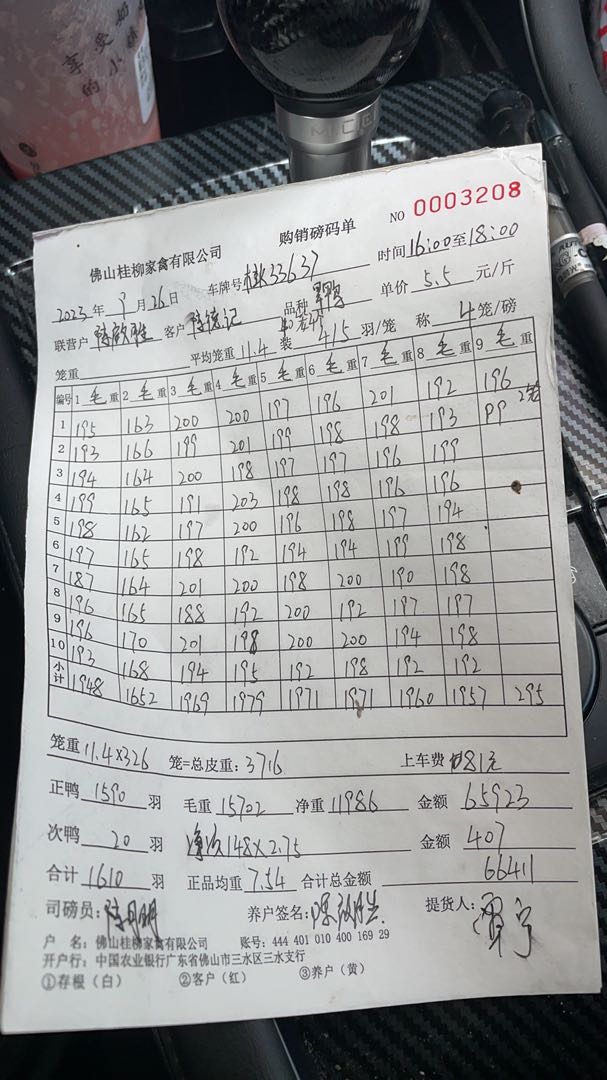 享受奶
的小
MIC
佛山桂柳家禽有限公司 购销磅码单 NO 0003208
2023年9月26日 车牌号 桂33637 时间16:00至18:00
联营户 客户 品种 单价 5.5 元/斤
笼重 平均笼重11.4 装 4/5 羽/笼 称 4 笼/磅
编号 1 毛重 2 毛重 3 毛重 4 毛重 5 毛重 6 毛重 7 毛重 8 毛重 9 毛重
1 195 163 200 200 197 196 201 192 196
2 193 166 199 201 199 198 198 193 99 2笼
3 194 164 200 198 197 197 196 199
4 199 165 191 203 198 198 196 196
5 198 162 197 200 196 198 197 194
6 197 165 198 192 194 194 199 198
7 187 164 201 200 198 200 190 198
8 196 165 188 192 200 192 197 197
9 196 170 201 198 200 200 194 198
10 193 168 194 195 192 198 192 192
小计 1948 1652 1969 1979 1971 1971 1960 1957 295
笼重 11.4×326 笼=总皮重: 3716 上车费 81元
正鸭 1590 羽 毛重 15702 净重 11986 金额 65923
次鸭 20 羽 净次148×2.75 金额 407
合计 1610 羽 正品均重 7.54 合计总金额 66411
司磅员: 养户签名: 提货人:
户 名: 佛山桂柳家禽有限公司 账号: 444 401 010 400 169 29
开户行: 中国农业银行广东省佛山市三水区三水支行
①存根(白) ②客户(红) ③养户(黄)